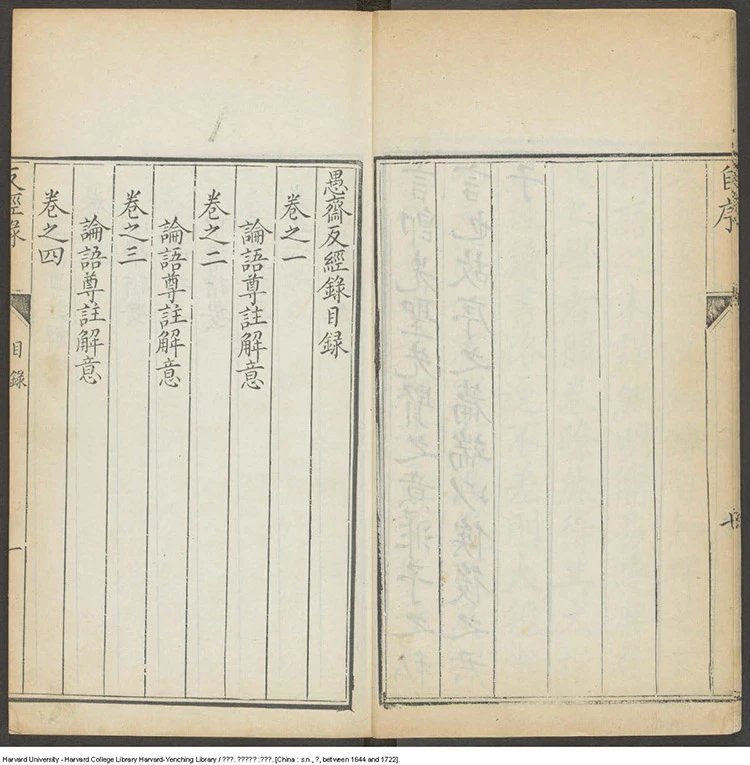 自序
愚齋反經錄目錄
卷之一
論語尊註解意
卷之二
論語尊註解意
卷之三
論語尊註解意
卷之四
反經錄
目錄
一
Harvard University - Harvard College Library Harvard-Yenching Library / ???. ????? :???. [China : s.n., ?, between 1644 and 1722].